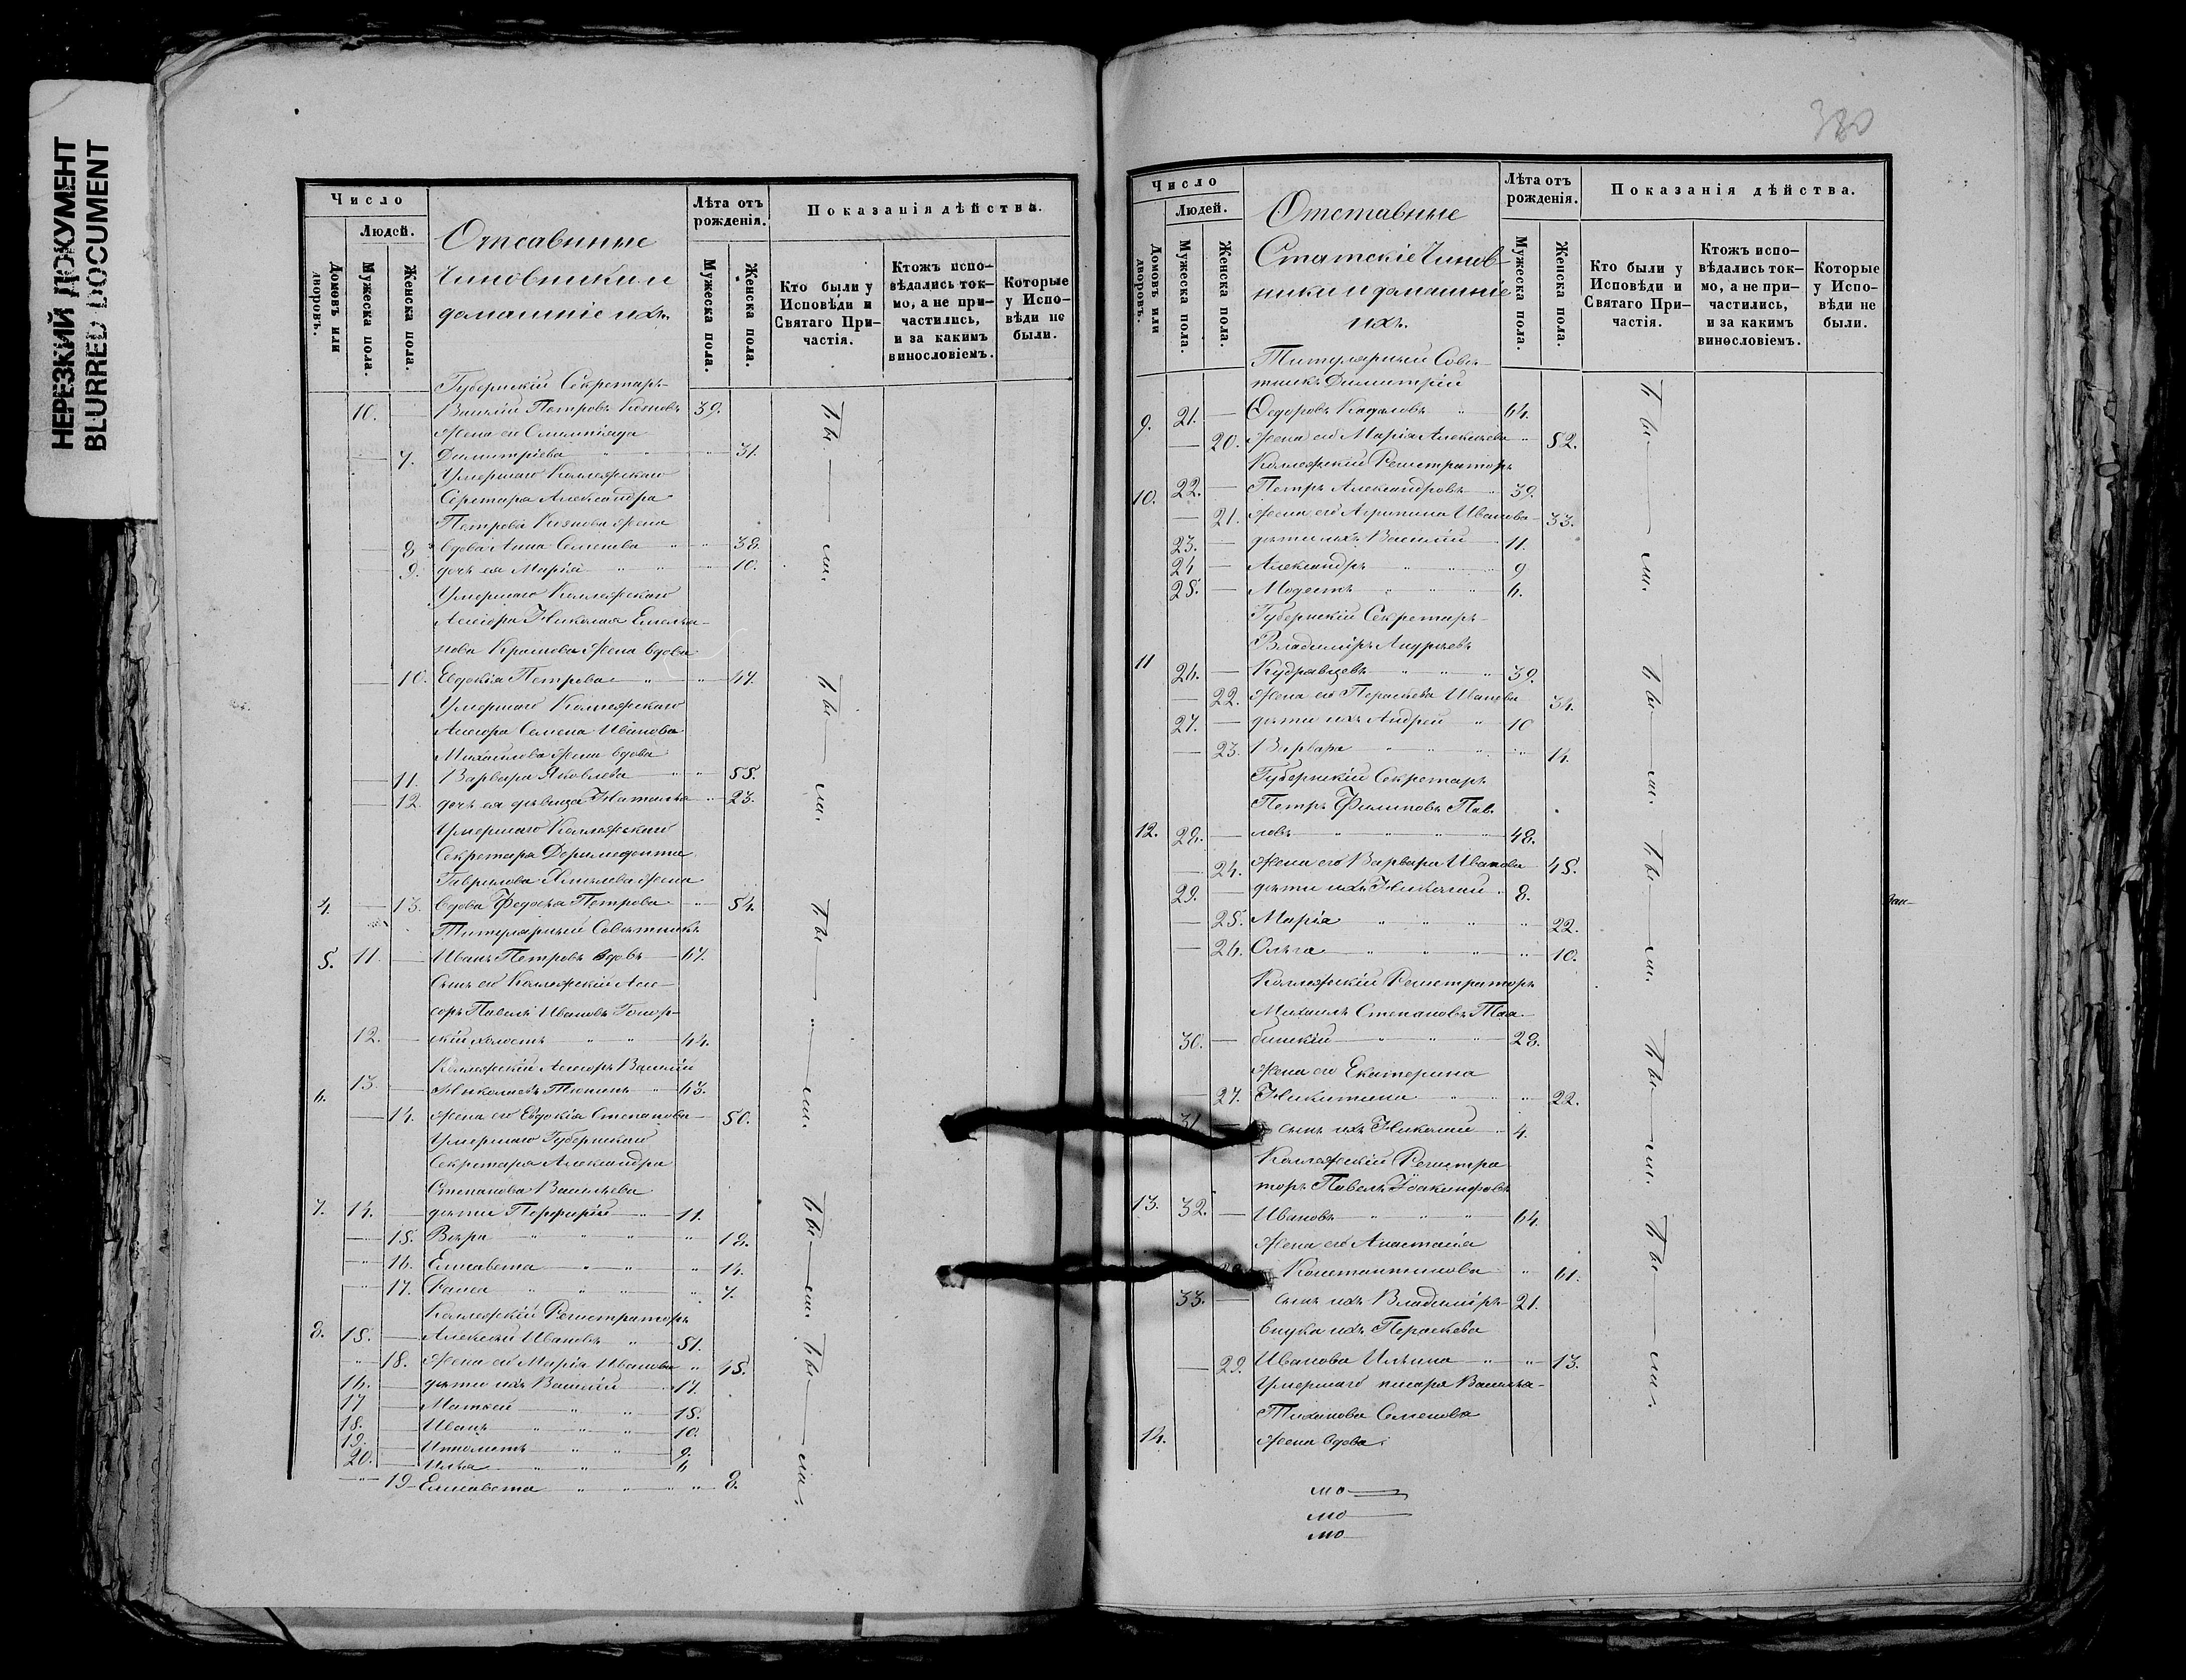 НЕРЕЗКИЙ ДОКУМЕНТ
BLURRED DOCUMENT
Число
Людей.
Домовъ или дворовъ.
Мужеска пола.
Женска пола.
Отсавнные
Чиновники и
домашніе ихъ.
Лѣта отъ рожденія.
Мужеска пола.
Женска пола.
Показанія дѣйства.
Кто были у Исповѣди и Святаго Причастія.
Ктожъ исповѣдались токмо, а не причастились, и за какимъ винословіемъ.
Которые у Исповѣди не были.
Губернскій Секретарь
10. Василій Петровъ 39.
жена его Олимпіяда
7. Димитріева 31.
Умершаго Коллежскаго
Сiретаря Александра
Петрова жена
8. вдова Анна Семенова 38.
9. дочь ея Марія 10.
Умершаго Коллежскаго
Асесора Николая Емелья-
нова жена вдова
10. Евдокія Петрова 47.
Умершаго Коллежскаго
Асесора Семена Иванова
Михайлова жена вдова
11. Варвара Яковлева 55.
12. дочь ея дѣвица Наталья 23.
Умершаго Коллежскаго
Секретаря Доримедонта
Гаврилова жена
4. 13. вдова Федосья Петрова 54.
Титулярный Совѣтникъ
5. 11. Иванъ Петровъ вдовъ 67.
Сынъ его Коллежскій Асе-
соръ Павелъ Ивановъ
12. скій холостъ 44.
Коллежскій Асесоръ Василій
6. 13. Николаевъ 63.
14. жена его Евдокія Степанова 50.
Умершаго Губернскаго
Секретаря Александра
Степанова Васильева
7. 14. дѣти Порфирій 11.
15. Вѣра 18.
16. Елисавета 14.
17. Раиса 7.
Коллежскій Регистраторъ
8. 15. Алексѣй Ивановъ 51.
18. жена его Марія Иванова 45.
16. дѣти ихъ Василій 17.
17 Матвей 15.
18. Иванъ 10.
19. Ипполитъ 9.
20. Илья 6
19 Елисавета 8.
380
Число
Людей.
Домовъ или дворовъ.
Мужеска пола.
Женска пола.
Отставные
Статскіе Чинов-
ники и домашніе
ихъ.
Лѣта отъ рожденія.
Мужеска пола.
Женска пола.
Показанія дѣйства.
Кто были у Исповѣди и Святаго Причастія.
Ктожъ исповѣдались токмо, а не причастились, и за какимъ винословіемъ.
Которые у Исповѣди не были.
Титулярный Совѣ-
тникъ Димитрій
9. 21. Федоровъ 64.
20. жена его Марія Алексѣева 52.
Коллежскій Регистраторъ
10. 22. Петръ Александровъ 39.
21. жена его Агрипина Иванова 33.
23. дѣти ихъ Василій 11.
24 Александръ 9
25. Модестъ 6.
Губернскій Секретарь
Владиміръ Андреевъ
11 26. Кудрявцевъ 39.
22. жена его Параскева Иванова 34.
27. дѣти ихъ Андрей 10
23. Варвара 14.
Губернскій Секретарь
Петръ Филиповъ Пав-
12. 28. ловъ 48.
24. жена его Варвара Иванова 45.
29. дѣти ихъ Николай 8.
25. Марія 22.
26. Ольга 10.
Коллежскій Регистраторъ
Михаилъ Степановъ
30. 28.
жена его Екатерина
27. Никитина 22.
31 сынъ ихъ Николай 4.
Коллежскій Регистра
торъ Павелъ Іоакинфовъ
13. 32. Ивановъ 64.
жена его Анастасія
28. Константинова 61.
33. сынъ ихъ Владиміръ 21.
внука ихъ Параскева
29. Иванова Ильина 13.
Умершаго писаря Василья
Тиханова Семенова
14. жена вдова